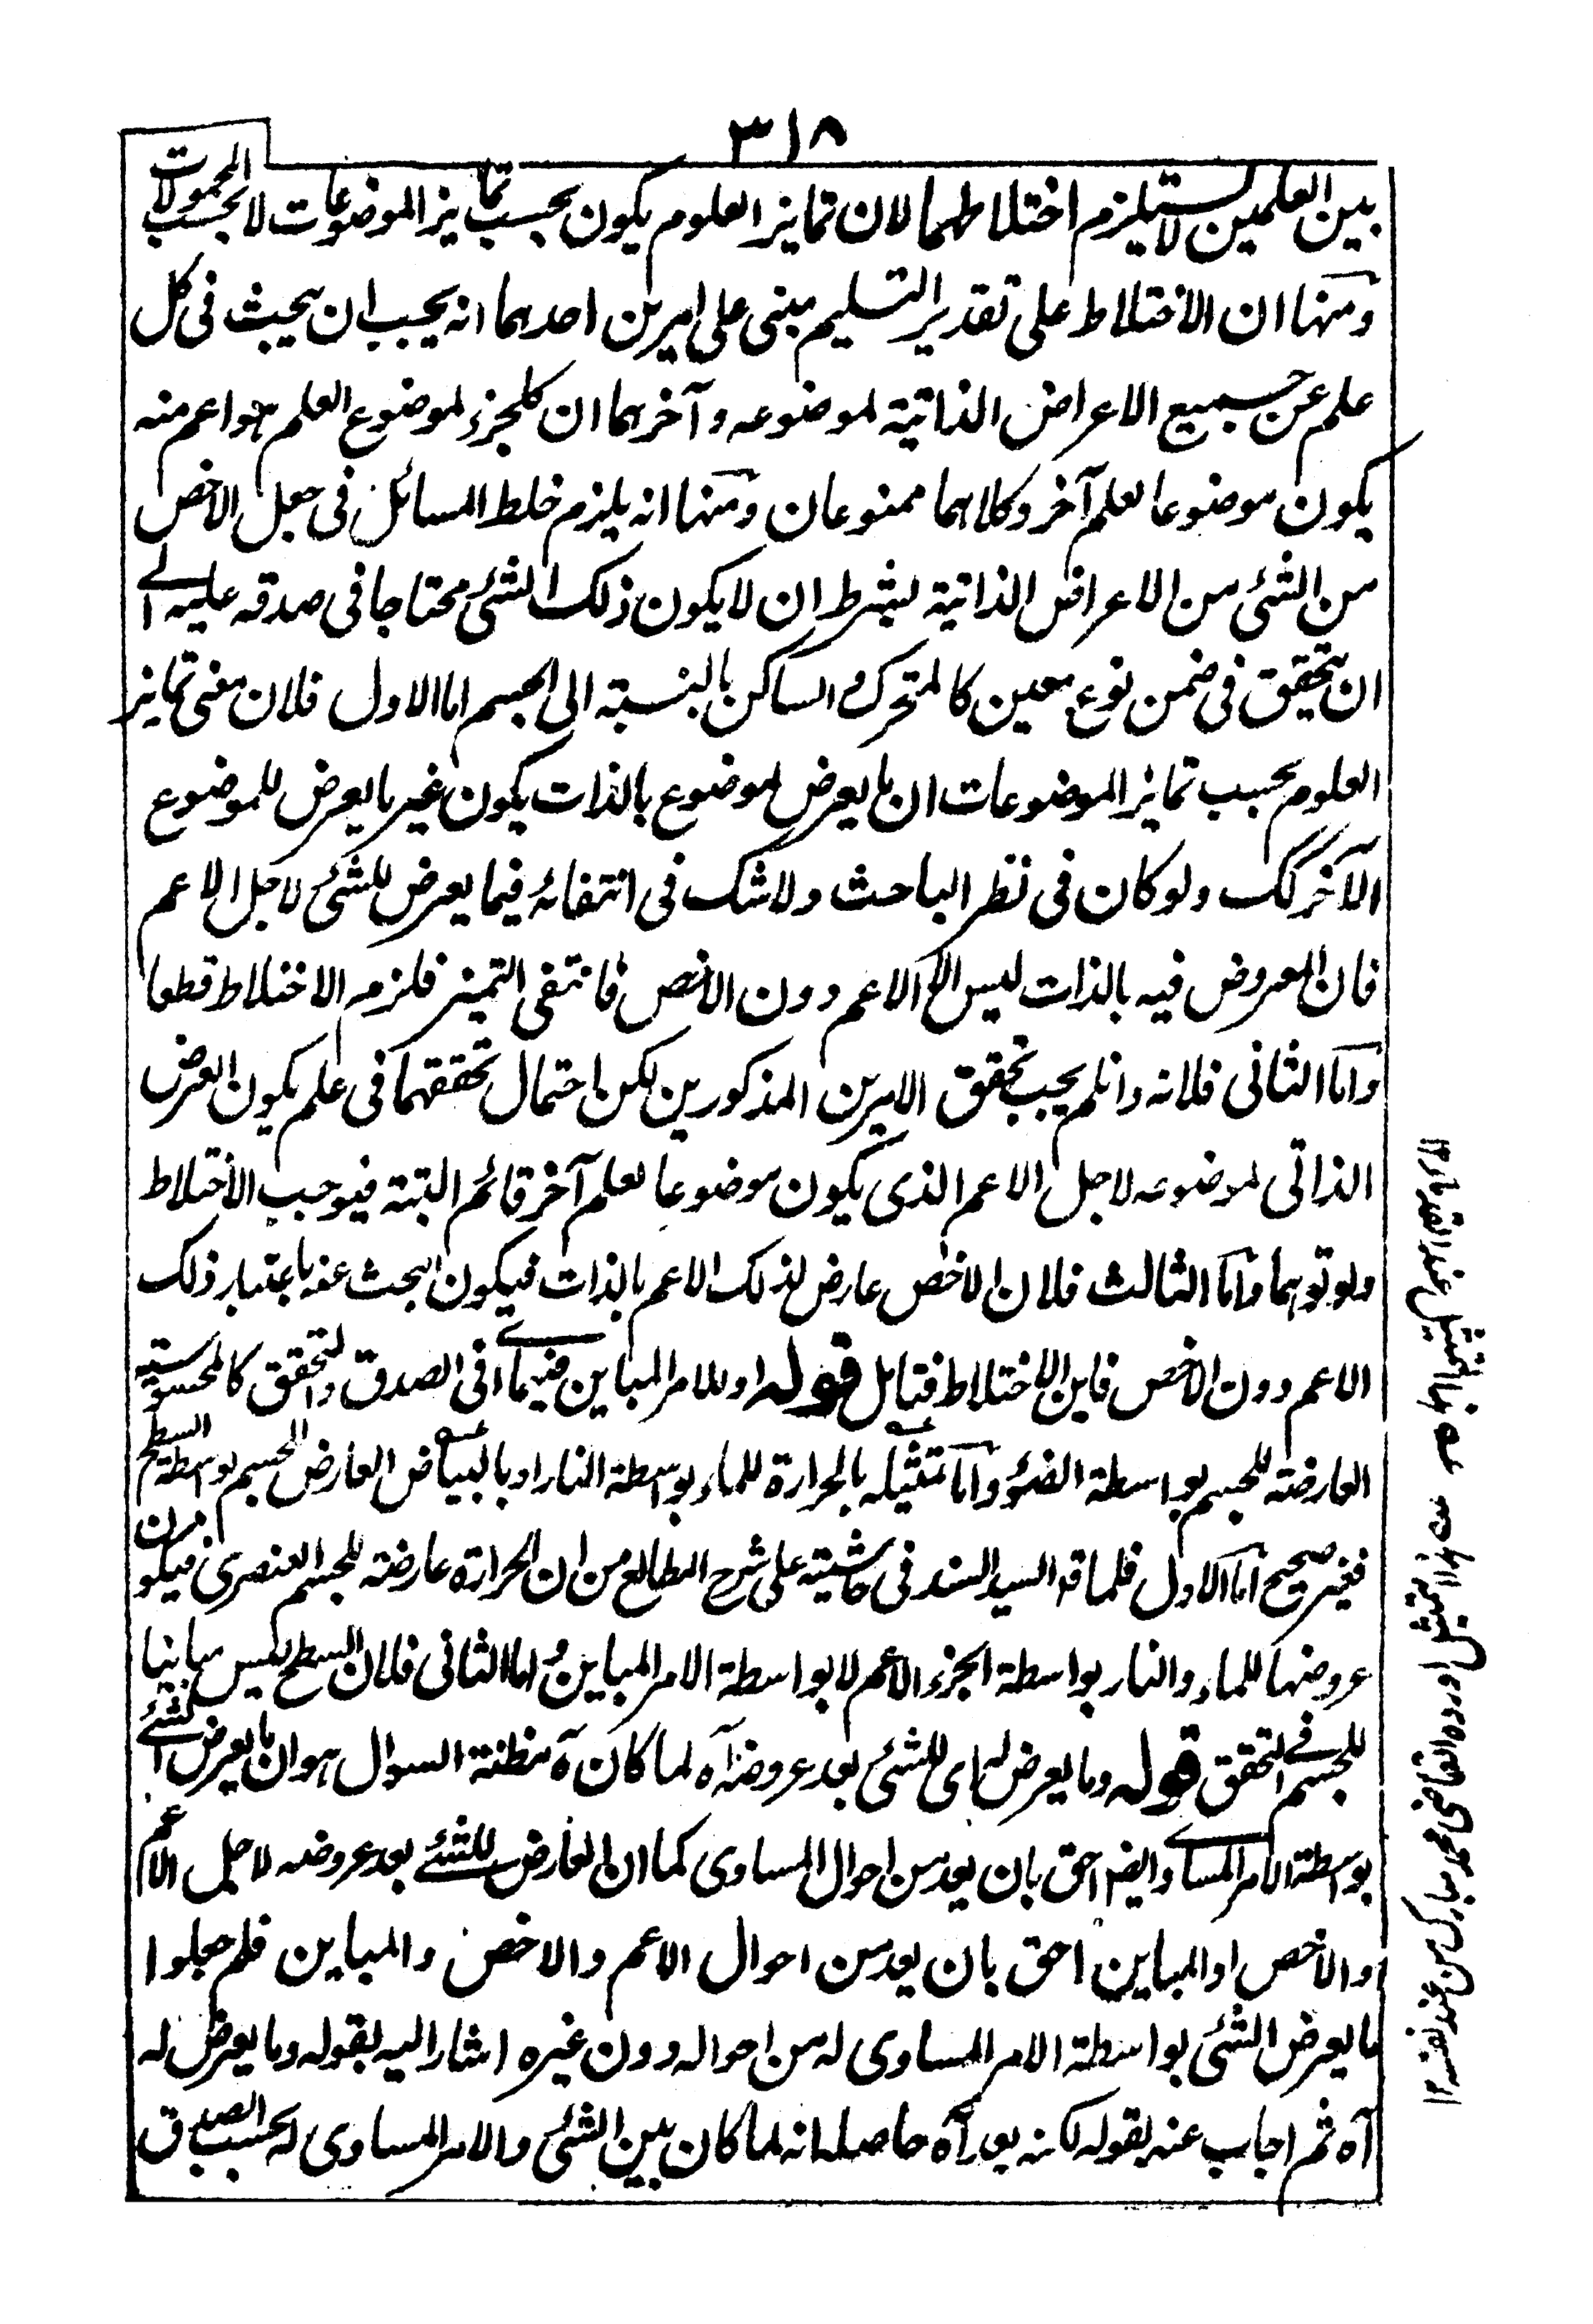 ٣١٨
بين العلمين لا يستلزم اختلاطهما لان تمايز العلوم يكون بحسب تمايز الموضوعات لا بحسب المحمولات
ومنها ان الاختلاط على تقدير التسليم مبنى على امرين احدهما انه يجب ان يبحث فى كل
علم عن جميع الاعراض الذاتية لموضوعه وآخرهما ان كلجزء لموضوع العلم هو اعم منه
يكون موضوعا لعلم آخر وكلاهما ممنوعان ومنها انه يلزم خلط المسائل فى جعل الاخص
من الشئ من الاعراض الذاتية بشرط ان لا يكون ذلك الشئ محتاجا فى صدقه عليه الى
ان يتحقق فى ضمن نوع معين كالمتحرك والساكن بالنسبة الى الجسم اما الاول فلان معنى تمايز
العلوم بحسب تمايز الموضوعات ان ما يعرض لموضوع بالذات يكون غير ما يعرض للموضوع
الآخر كك ولو كان فى نظر الباحث ولا شك فى انتفائه فيما يعرض للشئ لاجل الاعم
فان المعروض فيه بالذات ليس الا الاعم دون الاخص فانتفى التميز فلزم الاختلاط قطعا
واما الثانى فلانه وانلم يجب تحقق الامرين المذكورين لكن احتمال تحققهما فى علم يكون العرض
الذاتى لموضوعه لاجل الاعم الذى يكون موضوعا لعلم آخر قائم البتة فيوجب الاختلاط
ولو توهما واما الثالث فلان الاخص عارض لذلك الاعم بالذات فيكون البحث عنه باعتبار ذلك
الاعم دون الاخص فاين الاختلاط فتامل قوله او للامر المباين فيهما اى فى الصدق والتحقق كالمحسوسية
العارضة للجسم بواسطة الضوء واما تمثيله بالحرارة للماء بواسطة النار او بالبياض العارض للجسم بواسطة السطح
فغير صحيح اما الاول فلما قد السيد السند فى حاشيته على شرح المطالع من ان الحرارة عارضة للجسم العنصرى فيكون
عروضها للماء والنار بواسطة الجزء الاعم لا بواسطة الامر المباين واما الثانى فلان السطح ليس مباينا
للجسم فى التحقق قوله وما يعرض له اى للشئ بعد عروضه آه لما كان ه مظنة السوال هو ان ما يعرض الشئ
بواسطة الامر المساوى ايضا حق بان يعد من احوال المساوى كما ان العارض للشئ بعد عروضه لاجل الاعم
والاخص او المباين احق بان يعد من احوال الاعم والاخص والمباين فلم جعلوا
ما يعرض الشئ بواسطة الامر المساوى له من احواله دون غيره اشار اليه بقوله وما يعرض له
آه ثم اجاب عنه بقوله لكنه يعد آه حاصله انه لما كان بين الشئ والامر المساوى له بحسب الصدق
هذا التمثيل اورده القاضى محمد مبارك من عند نفسه ١٢